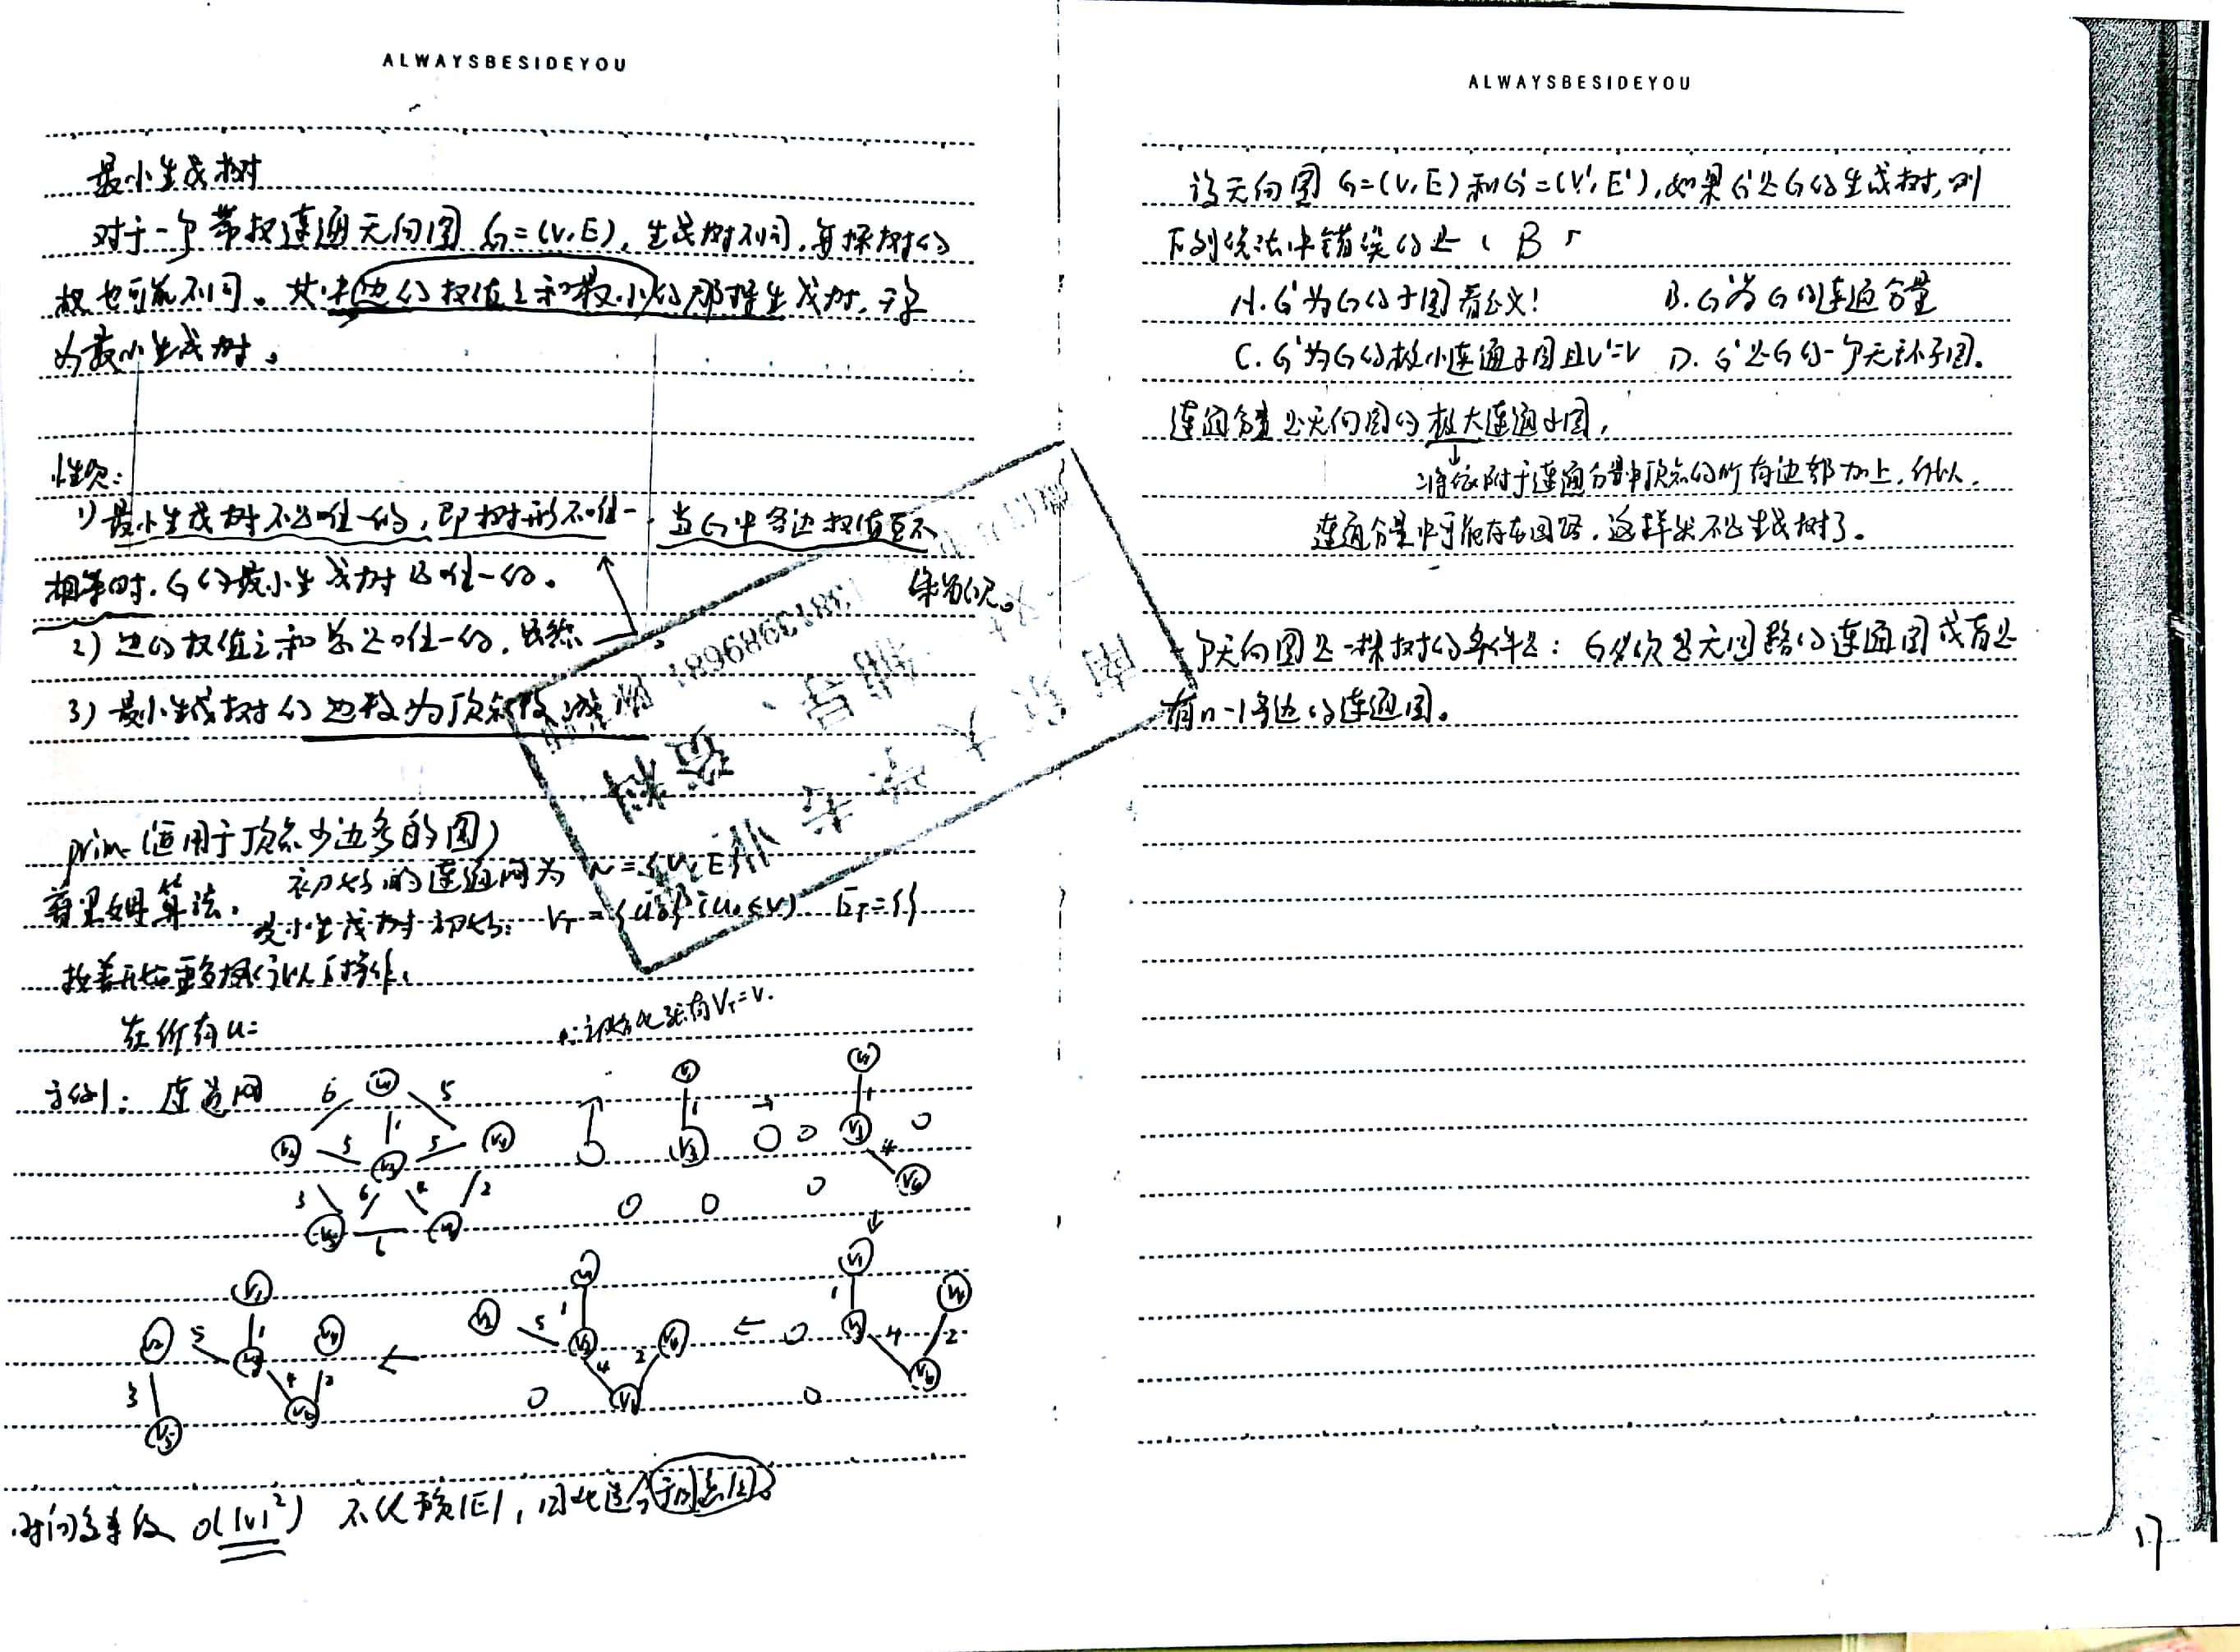 ALWAYSBESIDEYOU
最小生成树
对于一个带权连通无向图 G=(V,E),生成树不同,每棵树的
权也可能不同。其中边的权值之和最小的那棵生成树,称
为最小生成树。
性质:
1) 最小生成树不是唯一的,即树形不唯一,当G中各边权值互不
相等时,G的最小生成树是唯一的。
2) 边的权值之和总是唯一的,虽然
3) 最小生成树的边数为顶点数减
prim (适用于顶点少边多的图)
普里姆算法. 初始的连通网为 N={V,E}
最小生成树初始: VT={u0} (u0∈V) ET={}
接着开始重复执行以下操作:
在所有u=
初始化 有VT=V.
示例1: 连通网
6 5
5 1 5
3 6 4 2
6
V1
1
V3
V1
1
V3
4
V6
V1
1
V3 4 2 V4
V6
V1
V2 5 1
V3 4 2 V4
V6
V1
V2 5 1 V4
V3 4 2
3 V6
V5
时间复杂度 O(|V|²) 不依赖|E|,因此适合
ALWAYSBESIDEYOU
设无向图 G=(V,E)和G'=(V',E'),如果G'是G的生成树,则
下列说法中错误的是 ( B )
A. G'为G的子图 B. G'为G的连通分量
C. G'为G的极小连通子图且V'=V D. G'是G的一个无环子图.
连通分量是无向图的极大连通子图,
将依附于连通分量中顶点的所有边都加上,所以,
连通分量中可能存在回路,这样就不是生成树了.
一个无向图是一棵树的条件是: G必须是无回路的连通图或者是
有n-1条边的连通图。
南京大学
资料
17